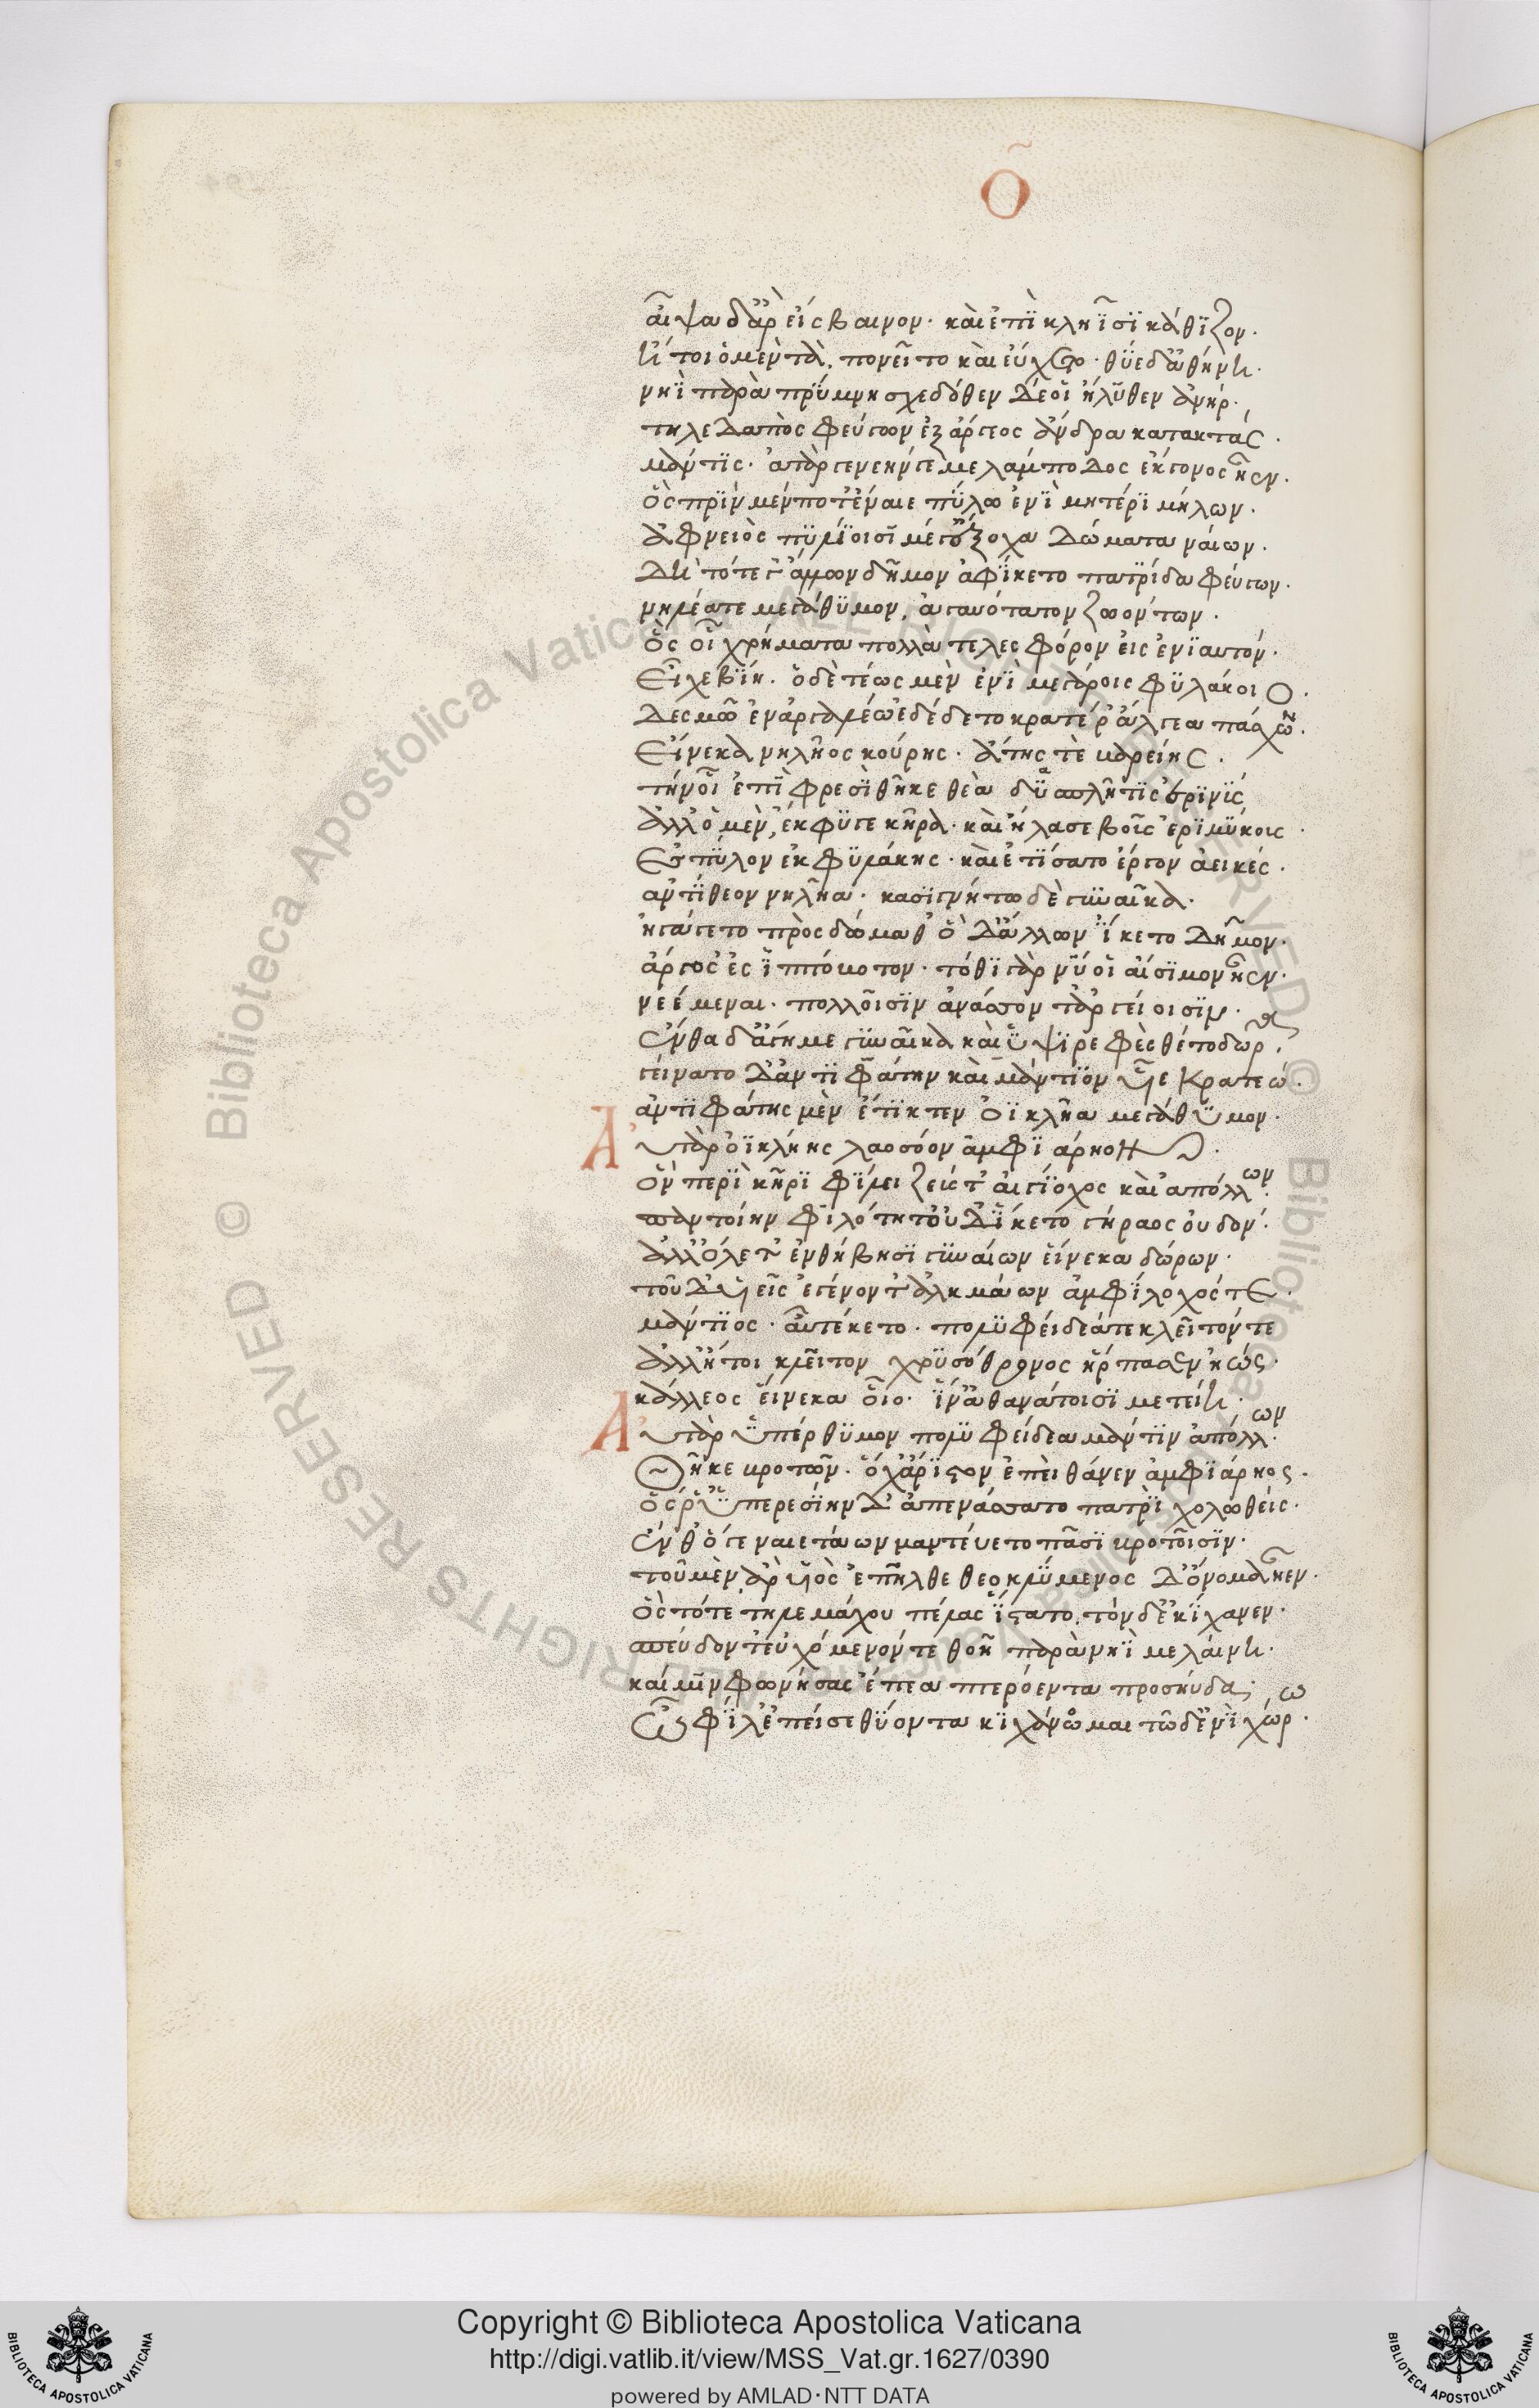 Ο
αἶψα δ' ἄρ' εἴσβαινον· καὶ ἐπὶ κληῖσι κάθιζον·
ἤτοι ὁ μὲν τὰ πονεῖτο καὶ εὔχετο· θῦε δ' ἀθήνη·
νηῒ παρὰ πρύμνη σχεδόθεν δέ οἱ ἤλυθεν ἀνήρ·
τηλεδαπὸς φεύγων ἐξ ἄργεος ἄνδρα κατακτάς·
μάντις· ἀτὰρ γενεήν γε μελάμποδος ἔκγονος ἦεν·
ὃς πρὶν μέν ποτ' ἔναιε πύλω ἐνὶ μητέρι μήλων·
ἀφνειὸς πυλίοισι μέγ' ἔξοχα δώματα ναίων·
δὴ τότε γ' ἄλλων δῆμον ἀφίκετο πατρίδα φεύγων·
νηλέα τε μεγάθυμον, ἀγαυότατον ζωόντων·
ὅς οἱ χρήματα πολλὰ τελεσφόρον εἰς ἐνιαυτόν·
εἶχε βίη· ὁ δὲ τέως μὲν ἐνὶ μεγάροις φυλάκοιο·
δεσμῶ ἐν ἀργαλέω ἐδέδετο κρατέρ' ἄλγεα πάσχων·
εἵνεκα νηλῆος κούρης· ἄτης τὲ βαρείης·
τήν οἱ ἐπὶ φρεσὶ θῆκε θεὰ δασπλῆτις ἐρινύς
ἀλλ' ὁ μὲν ἔκφυγε κῆρα· καὶ ἤλασε βοῦς ἐριμύκους·
ἐς πύλον ἐκ φυλάκης· καὶ ἐτίσατο ἔργον ἀεικές·
ἀντίθεον νηλῆα· κασιγνήτω δὲ γυναῖκα·
ἠγάγετο πρὸς δώμαθ' ὁ δ' ἄλλων ἵκετο δῆμον·
ἄργος ἐς ἱππόβοτον· τόθι γάρ νύ οἱ αἴσιμον ἦεν·
ναιέμεναι· πολλοῖσιν ἀνάσσοντ' ἀργείοισιν·
ἔνθα δ' ἔγημε γυναῖκα καὶ ὑψιρεφὲς θέτο δῶμα·
γείνατο δ' ἀντιφάτην καὶ μάντιον υἷε κραταιώ·
ἀντιφάτης μὲν ἔτικτεν ὀϊκλῆα μεγάθυμον·
Αὐτὰρ ὀϊκλήης λαοσόον ἀμφιάρηον·
ὃν περὶ κῆρι φίλει ζεύς τ' αἰγίοχος καὶ ἀπόλλων·
παντοίην φιλότητ' οὐδ' ἵκετο γήραος οὐδόν·
ἀλλ' ὄλετ' ἐν θήβησι γυναίων εἵνεκα δώρων·
τοῦ δ' υἱεῖς ἐγένοντ' ἀλκμάων ἀμφίλοχός τε·
μάντιος· αὖ τέκετο· πολυφείδεά τε κλεῖτόν τε
ἀλλ' ἤτοι κλεῖτον χρυσόθρονος ἥρπασεν ἠώς·
κάλλεος εἵνεκα οἷο· ἵν' ἀθανάτοισι μετείη·
Αὐτὰρ ὑπέρθυμον πολυφείδεα μάντιν ἀπόλλων·
θῆκε βροτῶν· ὄχ' ἄριστον ἐπεὶ θάνεν ἀμφιάρηος·
ὅς ῥ' ὑπερεσίηνδ' ἀπενάσσατο πατρὶ χολωθείς·
ἔνθ' ὅ γε ναιετάων μαντεύετο πᾶσι βροτοῖσιν·
τοῦ μὲν ἄρ' υἱὸς ἐπῆλθε θεοκλύμενος δ' ὄνομα ἦεν·
ὃς τότε τηλεμάχου πέλας ἵστατο, τὸν δ' ἐκίχανεν·
σπένδοντ' εὐχόμενόν τε θοῇ παρὰ νηῒ μελαίνη·
καί μιν φωνήσας ἔπεα πτερόεντα προσηύδα·
ὦ φίλ' ἐπεί σε θύοντα κιχάνομαι τῶδ' ἐνὶ χώρω·
Copyright © Biblioteca Apostolica Vaticana
http://digi.vatlib.it/view/MSS_Vat.gr.1627/0390
powered by AMLAD·NTT DATA